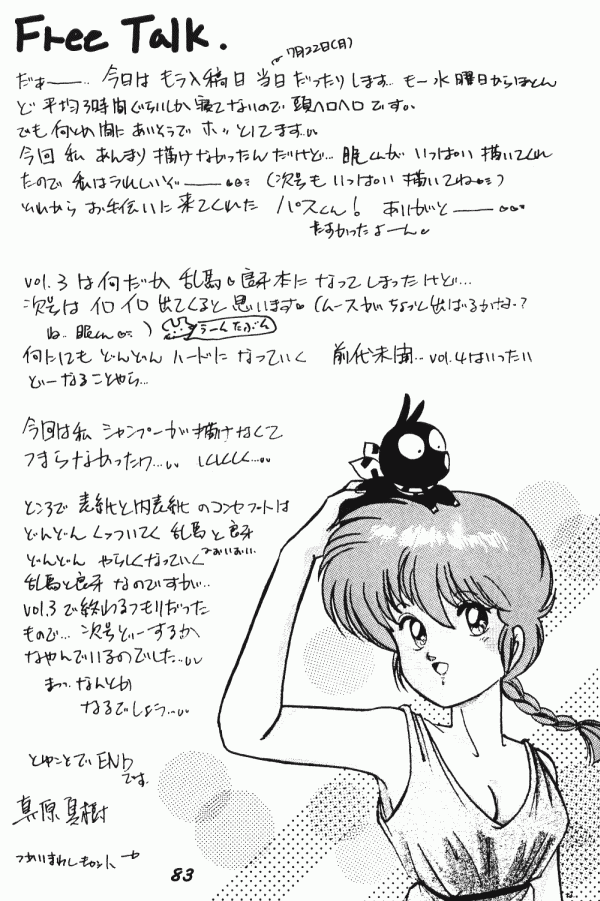 Free Talk.
7月22日(月)
だぁ——… 今日は もう入稿日 当日 だったりします… もー水曜日からほとん
ど 平均3時間ぐらいしか 寝てないので 頭ヘロヘロ です。
でも 何とか 間に あいそうで ホッ としてます…
今回 私 あんまり 描けなかったんだけど… 眠くんが いっぱい 描いてくれ
たので 私は うれしいぞ——— (次号も いっぱい 描いてね)
それから お手伝いに 来てくれた パスくん! ありがと———
たすかったよーん
vol.3 は何だか 乱馬 良牙本に なって しまったけど…
次号は イロイロ 出てくると 思います。(ムースがちょっと出ばるかな?
ね、眠くん )
うーんたぶん
何にしても どんどん ハードに なっていく 前代未聞… vol.4はいったい
どーなることやら…
今回は私 シャンプーが描けなくて
つまらなかったワ… しくしく…
ところで 表紙と内表紙 のコンセプトは
どんどん くっついてく 乱馬と良牙
どんどん やらしくなっていく
おいおい
乱馬と良牙 なのですが…
vol.3で終わるつもりだった
もので… 次号どーするか
なやんでいるのでした…
まっ、なんとか
なるでしょう…
とゆことで END
です。
真原真樹
83